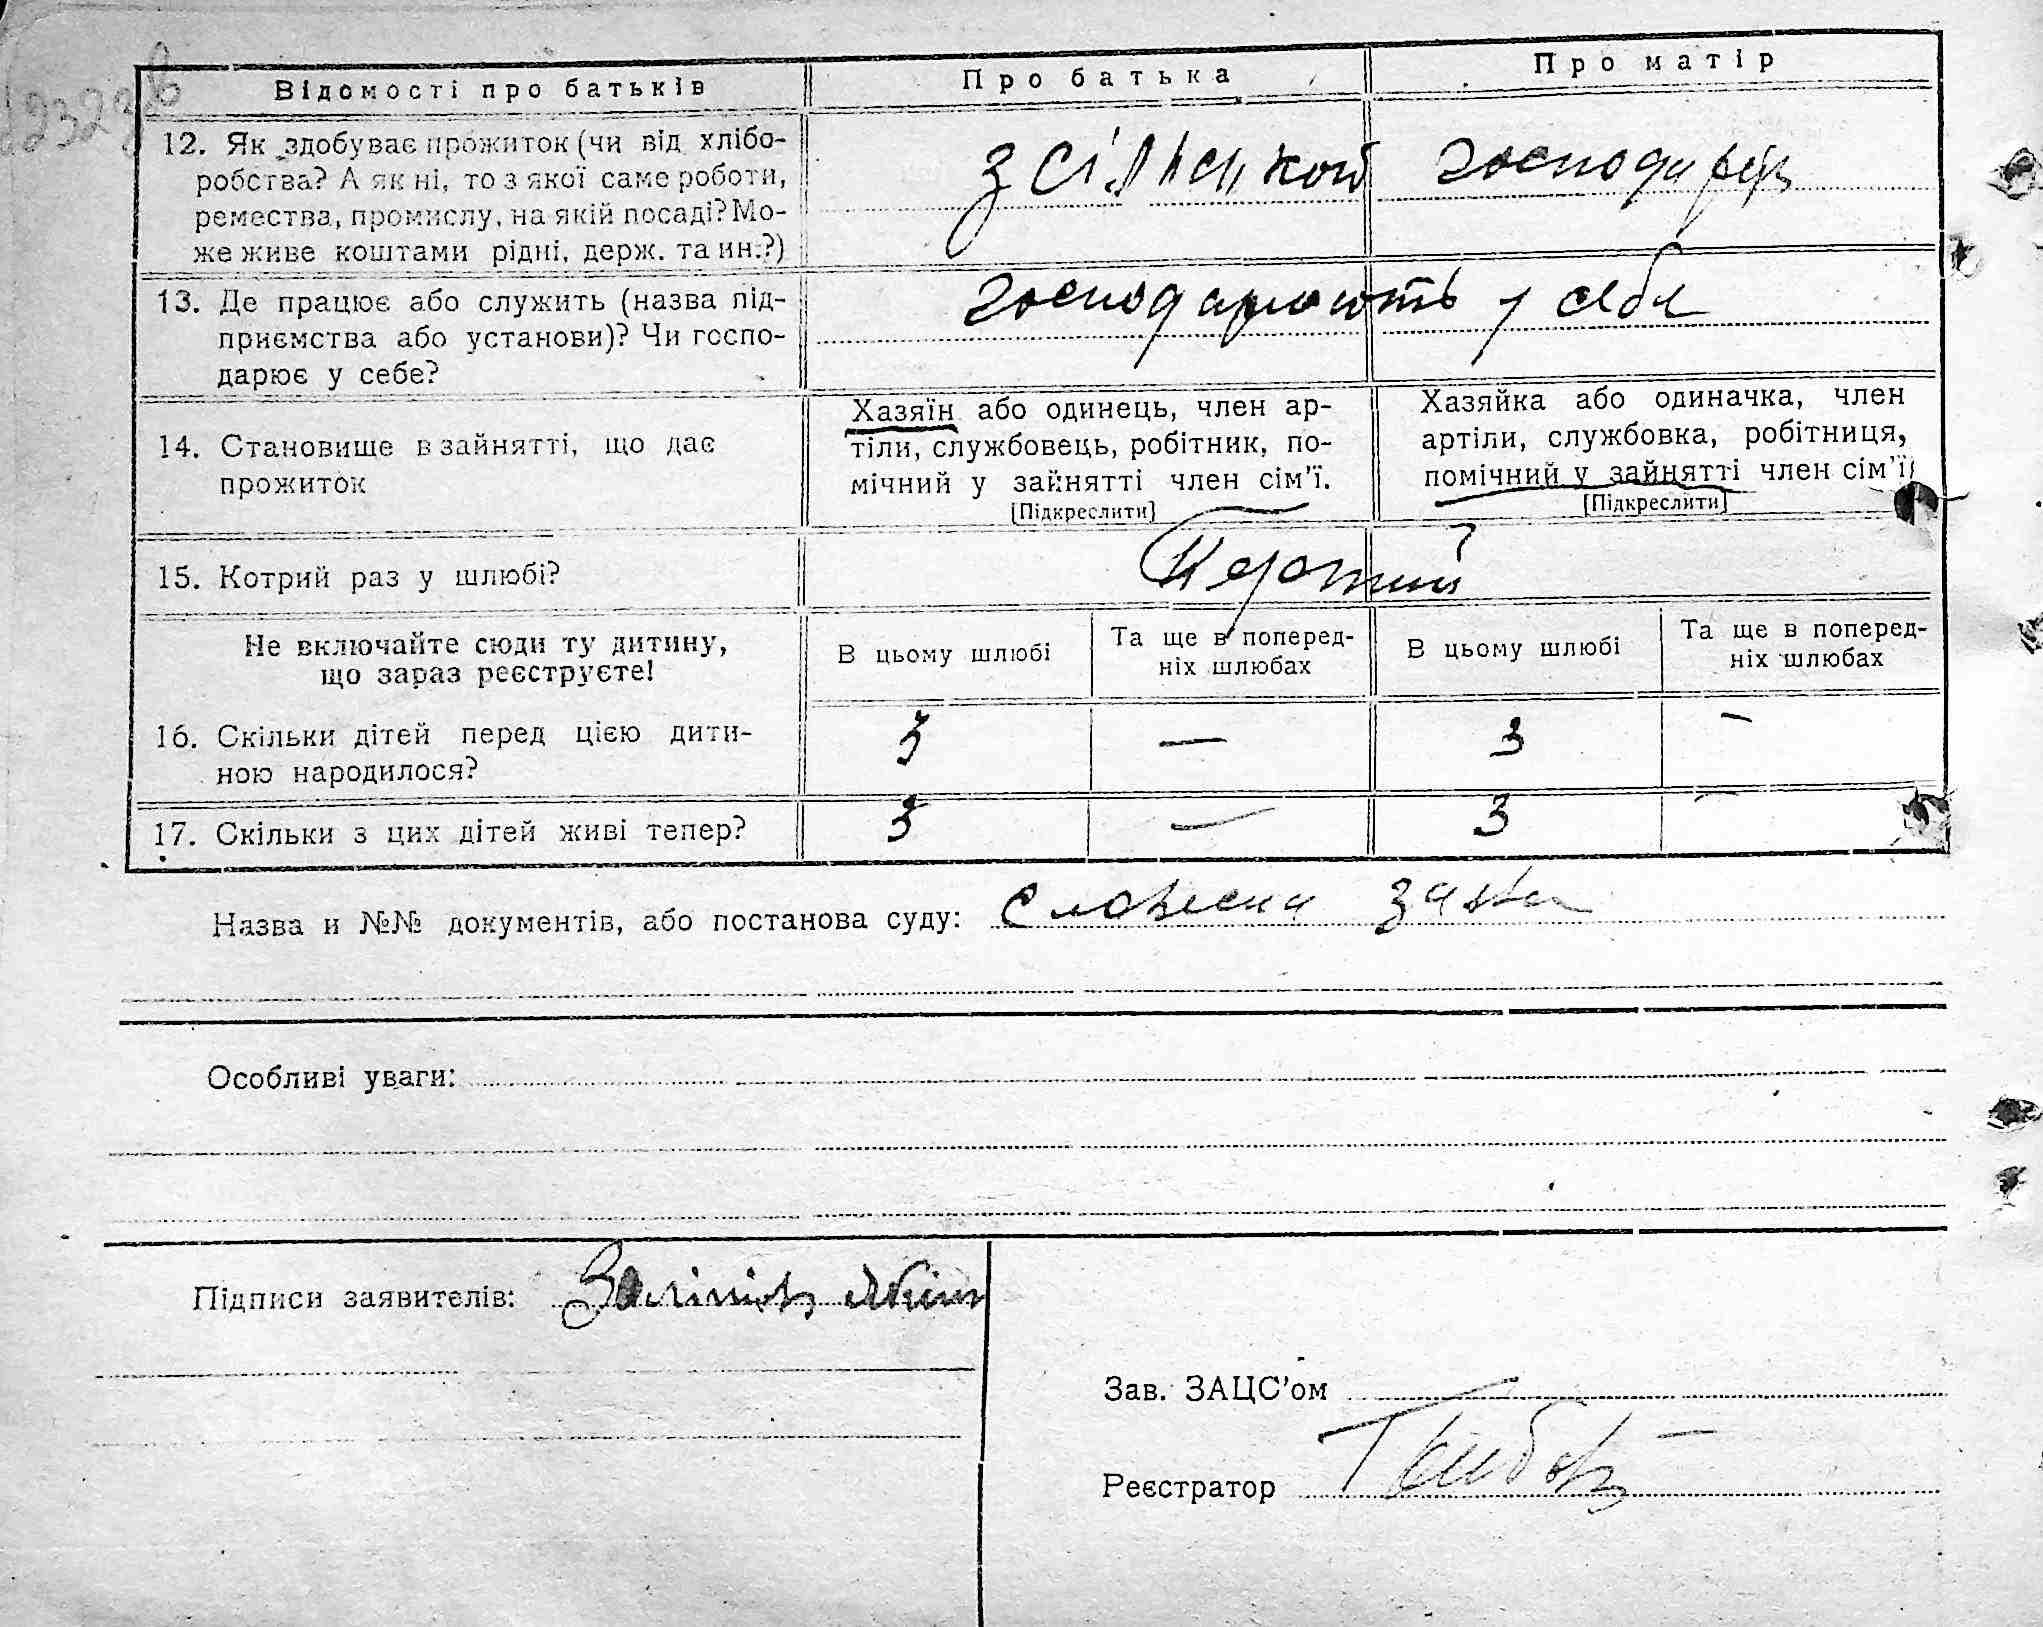 Відомості про батьків
Про батька
Про матір
12. Як здобуває прожиток (чи від хлібо-
робства? А як ні, то з якої саме роботи,
ремества, промислу, на якій посаді? Мо-
же живе коштами рідні, держ. та ин.?)
з сільської господарки
13. Де працює або служить (назва під-
приємства або установи)? Чи госпо-
дарює у себе?
господарюють у себе
14. Становище в зайнятті, що дає
прожиток
Хазяїн або одинець, член ар-
тіли, службовець, робітник, по-
мічний у зайнятті член сім'ї.
[Підкреслити]
Хазяйка або одиначка, член
артіли, службовка, робітниця,
помічний у зайнятті член сім'ї
[Підкреслити]
15. Котрий раз у шлюбі?
Не включайте сюди ту дитину,
що зараз реєструєте!
В цьому шлюбі
Та ще в поперед-
ніх шлюбах
В цьому шлюбі
Та ще в поперед-
ніх шлюбах
16. Скільки дітей перед цією дити-
ною народилося?
3 — 3 —
17. Скільки з цих дітей живі тепер?
3 — 3 —
Назва и №№ документів, або постанова суду: Словесна заява
Особливі уваги:
Підписи заявителів: Якім
Зав. ЗАЦС'ом
Реєстратор